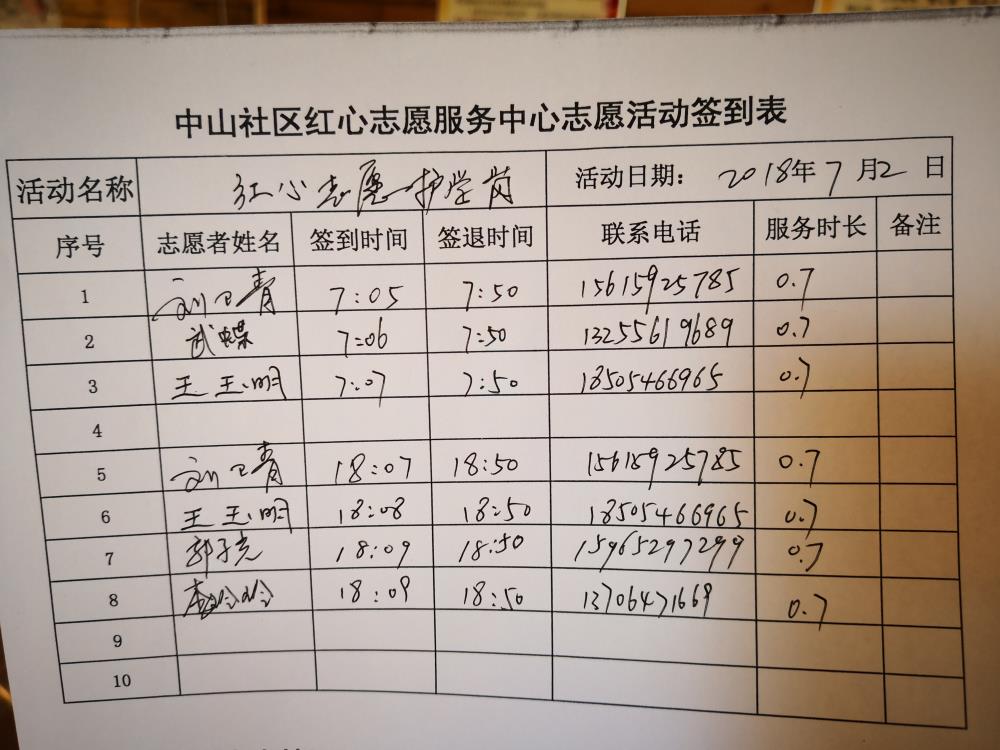 中山社区红心志愿服务中心志愿活动签到表
活动名称 红心志愿护学岗 活动日期： 2018年7月2日
序号 志愿者姓名 签到时间 签退时间 联系电话 服务时长 备注
1 刘卫青 7:05 7:50 15615925785 0.7
2 武蝶 7:06 7:50 13255619689 0.7
3 王玉明 7:07 7:50 18505466965 0.7
4
5 刘卫青 18:07 18:50 15615925785 0.7
6 王玉明 18:08 18:50 18505466965 0.7
7 郭子亮 18:09 18:50 15965297299 0.7
8 18:09 18:50 13706471669 0.7
9
10